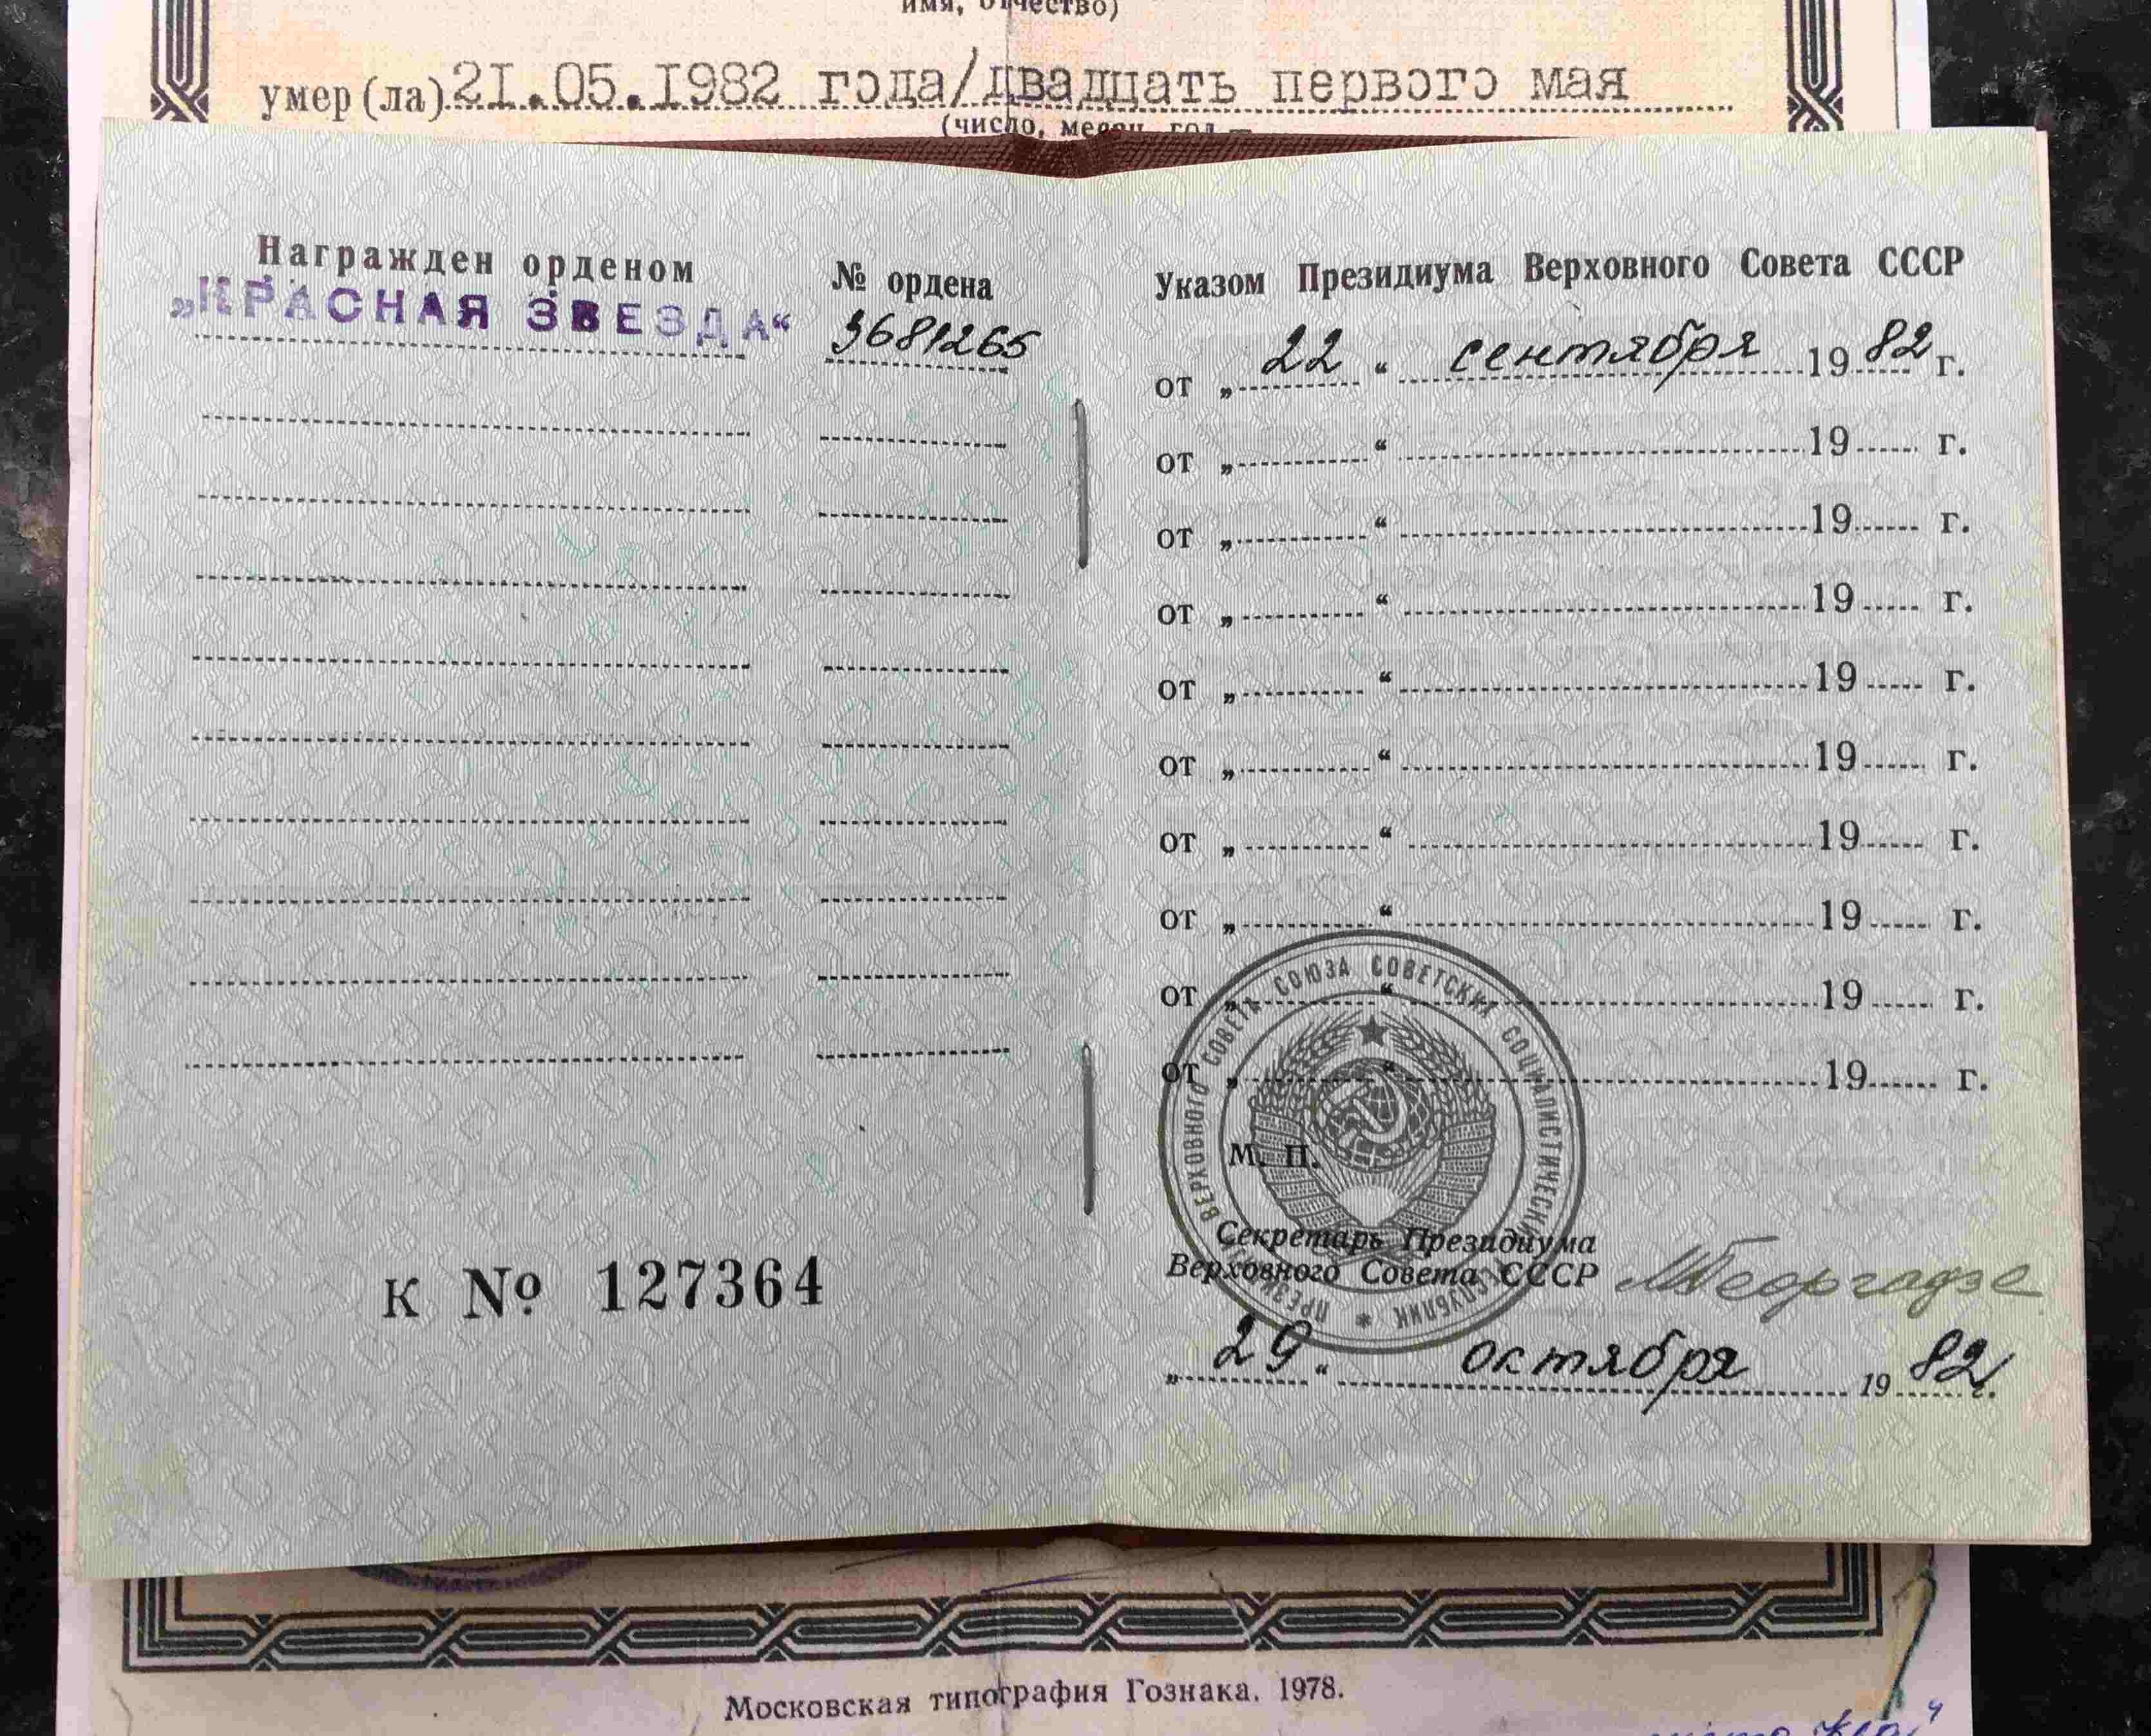 имя, отчество)
умер (ла) 21.05.1982 года/двадцать первого мая
(число, месяц, год
Награжден орденом
№ ордена
„КРАСНАЯ ЗВЕЗДА“
3681265
Указом Президиума Верховного Совета СССР
от „ 22 “ сентября 19 82 г.
от „ “ 19 г.
от „ “ 19 г.
от „ “ 19 г.
от „ “ 19 г.
от „ “ 19 г.
от „ “ 19 г.
от „ “ 19 г.
от „ “ 19 г.
от „ “ 19 г.
ПРЕЗИДИУМ ВЕРХОВНОГО СОВЕТА СОЮЗА СОВЕТСКИХ СОЦИАЛИСТИЧЕСКИХ РЕСПУБЛИК *
М. П.
Секретарь Президиума
Верховного Совета СССР
МГеоргадзе
„ 29 “ октября 19 82 г.
К № 127364
Московская типография Гознака. 1978.